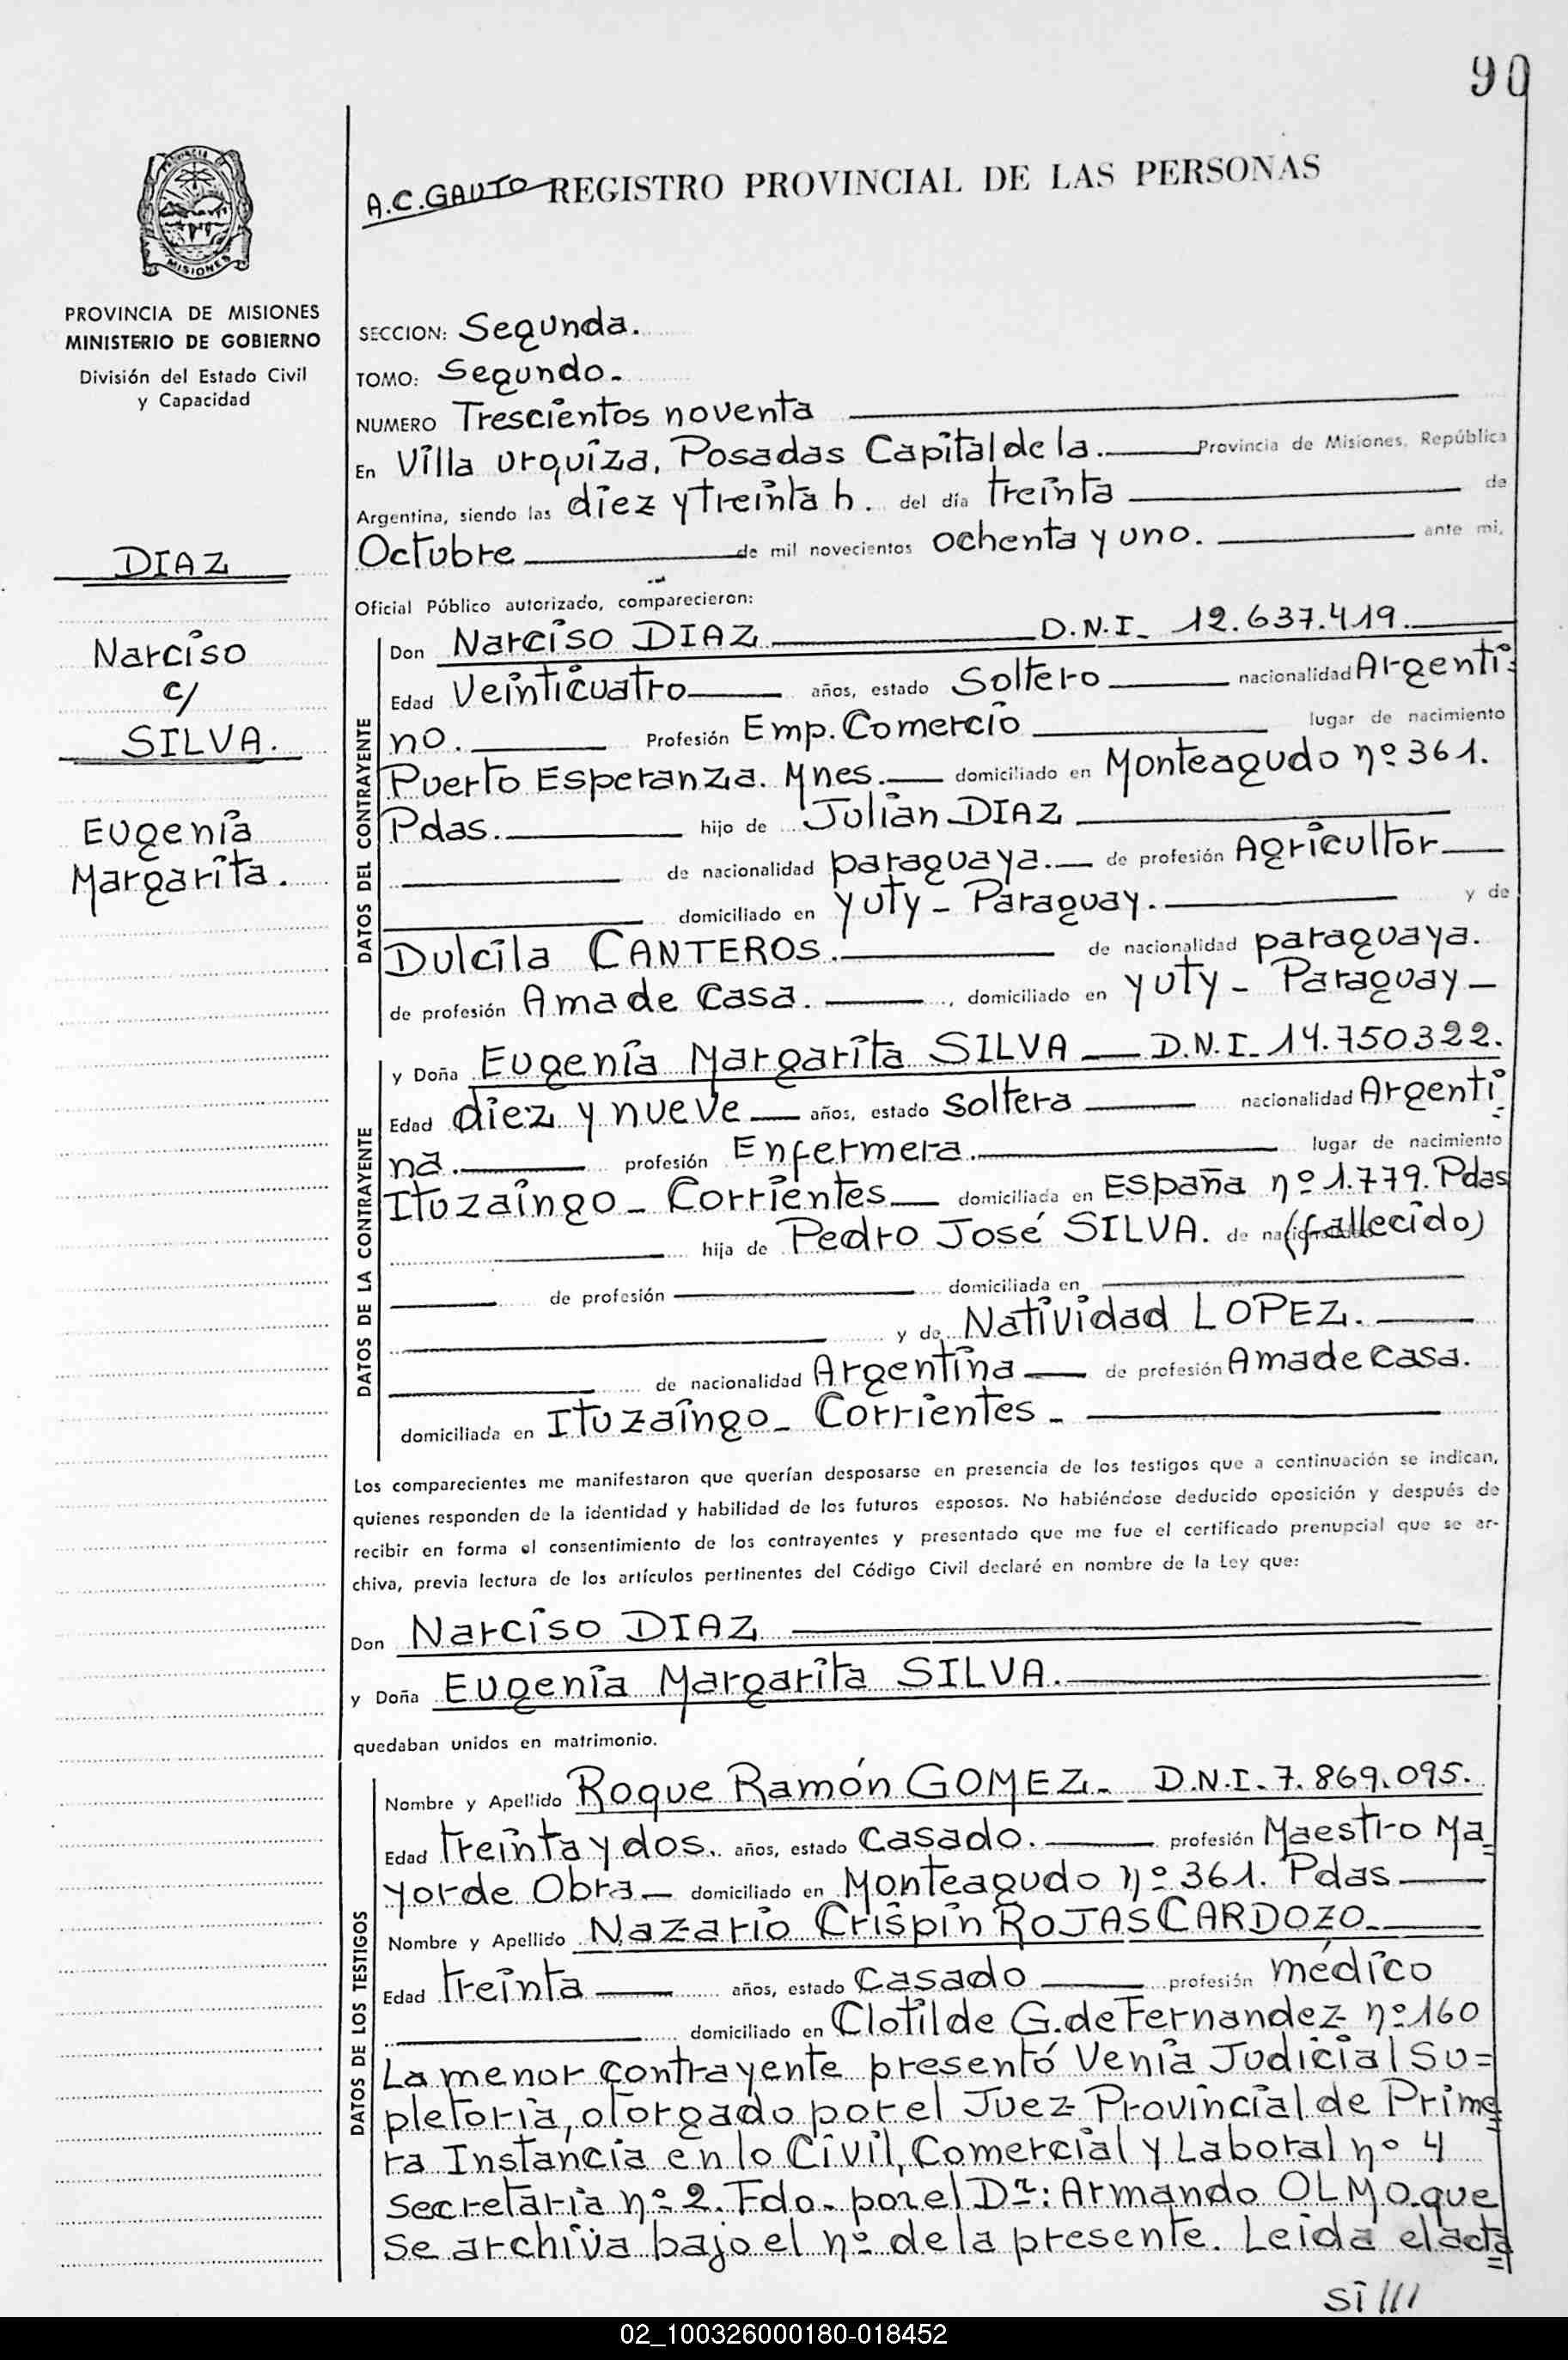 90
A.C.GAUTO REGISTRO PROVINCIAL DE LAS PERSONAS
PROVINCIA DE MISIONES
PROVINCIA DE MISIONES
MINISTERIO DE GOBIERNO
División del Estado Civil
y Capacidad
DIAZ
Narciso
c/
SILVA.
Eugenia
Margarita.
SECCION: Segunda.
TOMO: Segundo.
NUMERO Trescientos noventa
En Villa Urquiza, Posadas Capital de la. Provincia de Misiones, República
Argentina, siendo las diez y treinta h. del día treinta de
Octubre de mil novecientos ochenta y uno. ante mi,
Oficial Público autorizado, comparecieron:
DATOS DEL CONTRAYENTE
Don Narciso DIAZ D.N.I. 12.637.419.
Edad Veinticuatro años, estado Soltero nacionalidad Argenti=
no. Profesión Emp. Comercio lugar de nacimiento
Puerto Esperanza. Mnes. domiciliado en Monteagudo nº 361.
Pdas. hijo de Julian DIAZ
de nacionalidad paraguaya. de profesión Agricultor
domiciliado en Yuty - Paraguay. y de
Dulcila CANTEROS. de nacionalidad paraguaya.
de profesión Ama de Casa. , domiciliado en Yuty - Paraguay -
DATOS DE LA CONTRAYENTE
y Doña Eugenia Margarita SILVA D.N.I. 14.750.322.
Edad diez y nueve años, estado soltera nacionalidad Argenti=
na. profesión Enfermera. lugar de nacimiento
Ituzaingo - Corrientes domiciliada en España nº 1.779. Pdas
hija de Pedro José SILVA. de nacionalidad (fallecido)
de profesión domiciliada en
y de Natividad LOPEZ.
de nacionalidad Argentina de profesión Ama de Casa.
domiciliada en Ituzaingo - Corrientes -
Los comparecientes me manifestaron que querían desposarse en presencia de los testigos que a continuación se indican,
quienes responden de la identidad y habilidad de los futuros esposos. No habiéndose deducido oposición y después de
recibir en forma el consentimiento de los contrayentes y presentado que me fue el certificado prenupcial que se ar-
chiva, previa lectura de los artículos pertinentes del Código Civil declaré en nombre de la Ley que:
Don Narciso DIAZ
y Doña Eugenia Margarita SILVA.
quedaban unidos en matrimonio.
DATOS DE LOS TESTIGOS
Nombre y Apellido Roque Ramón GOMEZ. D.N.I. 7.869.095.
Edad treinta y dos. años, estado Casado. profesión Maestro Ma=
yor de Obra - domiciliado en Monteagudo nº 361. Pdas
Nombre y Apellido Nazario Crispin ROJAS CARDOZO.
Edad treinta años, estado Casado profesión médico
domiciliado en Clotilde G. de Fernandez nº 160
La menor contrayente presentó Venia Judicial Su=
pletoria, otorgado por el Juez Provincial de Prime=
ra Instancia en lo Civil, Comercial y Laboral nº 4
Secretaria nº 2. Fdo. por el Dr: Armando OLMO que
se archiva bajo el nº de la presente. Leida el acta=
si///
02_100326000180-018452